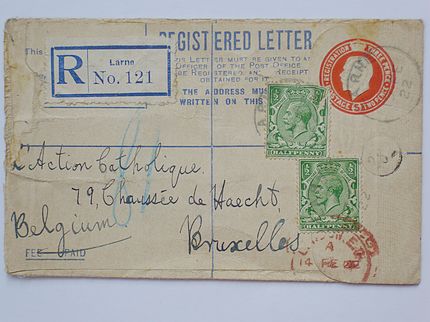 REGISTERED LETTER
This
Larne
R No. 121
LETTER MUST BE GIVEN TO
OFFICER OF THE POST OFFICE
BE REGISTERED, AN RECEIPT
OBTAINED FOR IT
THE ADDRESS MUST
WRITTEN ON THIS
REGISTRATION THREE PENCE
POSTAGE TWO PENCE
HALFPENNY
HALFPENNY
L'Action Catholique.
79, Chaussée de Haecht,
Belgium
Bruxelles
FEE PAID
4
14 FE 22